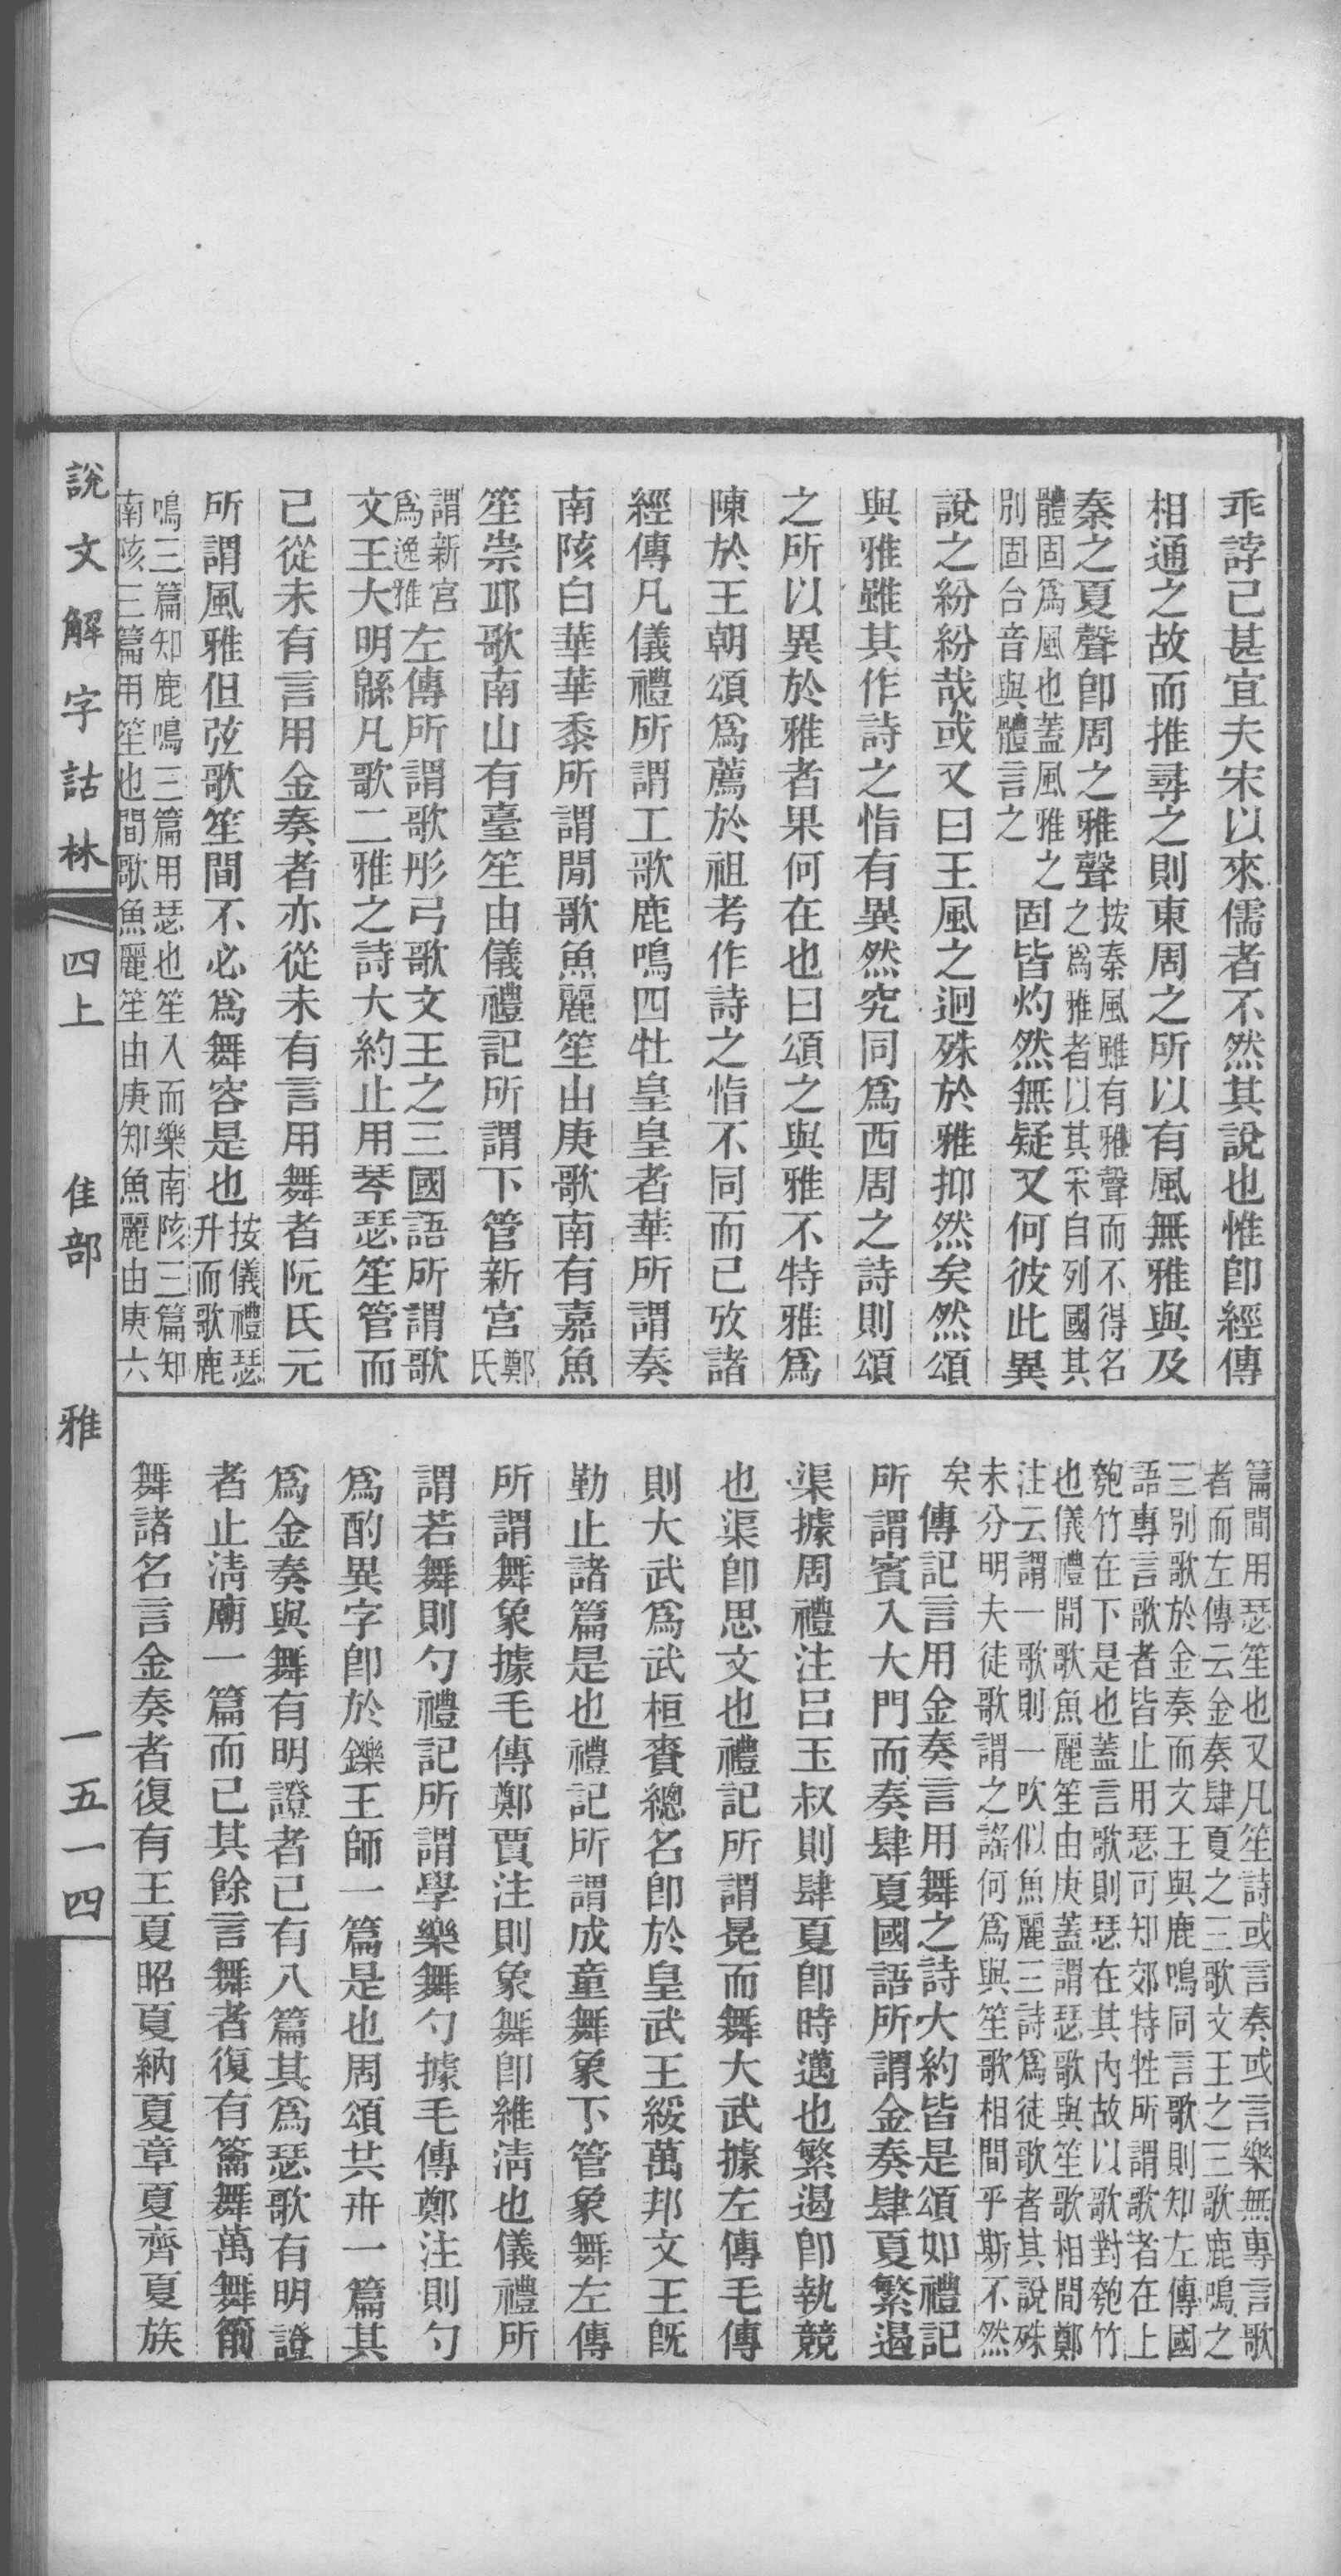 乖誖已甚宜夫宋以來儒者不然其說也惟卽經傳
相通之故而推尋之則東周之所以有風無雅與及
秦之夏聲卽周之雅聲按秦風雖有雅聲而不得名之爲雅者以其采自列國其
體固爲風也蓋風雅之別固合音與體言之固皆灼然無疑又何彼此異
說之紛紛哉或又曰王風之迥殊於雅抑然矣然頌
與雅雖其作詩之恉有異然究同爲西周之詩則頌
之所以異於雅者果何在也曰頌之與雅不特雅爲
陳於王朝頌爲薦於祖考作詩之恉不同而已攷諸
經傳凡儀禮所謂工歌鹿鳴四牡皇皇者華所謂奏
南陔白華華黍所謂閒歌魚麗笙由庚歌南有嘉魚
笙崇邱歌南山有臺笙由儀禮記所謂下管新宮鄭氏
謂新宮爲逸雅左傳所謂歌彤弓歌文王之三國語所謂歌
文王大明緜凡歌二雅之詩大約止用琴瑟笙管而
已從未有言用金奏者亦從未有言用舞者阮氏元
所謂風雅但弦歌笙間不必爲舞容是也按儀禮瑟升而歌鹿
鳴三篇知鹿鳴三篇用瑟也笙入而樂南陔三篇知
南陔三篇用笙也間歌魚麗笙由庚知魚麗由庚六
篇間用瑟笙也又凡笙詩或言奏或言樂無專言歌
者而左傳云金奏肆夏之三歌文王之三歌鹿鳴之
三別歌於金奏而文王與鹿鳴同言歌則知左傳國
語專言歌者皆止用瑟可知郊特牲所謂歌者在上
匏竹在下是也蓋言歌則瑟在其內故以歌對匏竹
也儀禮間歌魚麗笙由庚蓋謂瑟歌與笙歌相間鄭
注云謂一歌則一吹似魚麗三詩爲徒歌者其說殊
未分明夫徒歌謂之謠何爲與笙歌相間乎斯不然
矣傳記言用金奏言用舞之詩大約皆是頌如禮記
所謂賓入大門而奏肆夏國語所謂金奏肆夏繁遏
渠據周禮注呂玉叔則肆夏卽時邁也繁遏卽執競
也渠卽思文也禮記所謂冕而舞大武據左傳毛傳
則大武爲武桓賚總名卽於皇武王綏萬邦文王旣
勤止諸篇是也禮記所謂成童舞象下管象舞左傳
所謂舞象據毛傳鄭賈注則象舞卽維淸也儀禮所
謂若舞則勺禮記所謂學樂舞勺據毛傳鄭注則勺
爲酌異字卽於鑠王師一篇是也周頌共卅一篇其
爲金奏與舞有明證者已有八篇其爲瑟歌有明證
者止淸廟一篇而已其餘言舞者復有籥舞萬舞箾
舞諸名言金奏者復有王夏昭夏納夏章夏齊夏族
說文解字詁林 四上 隹部 雅 一五一四